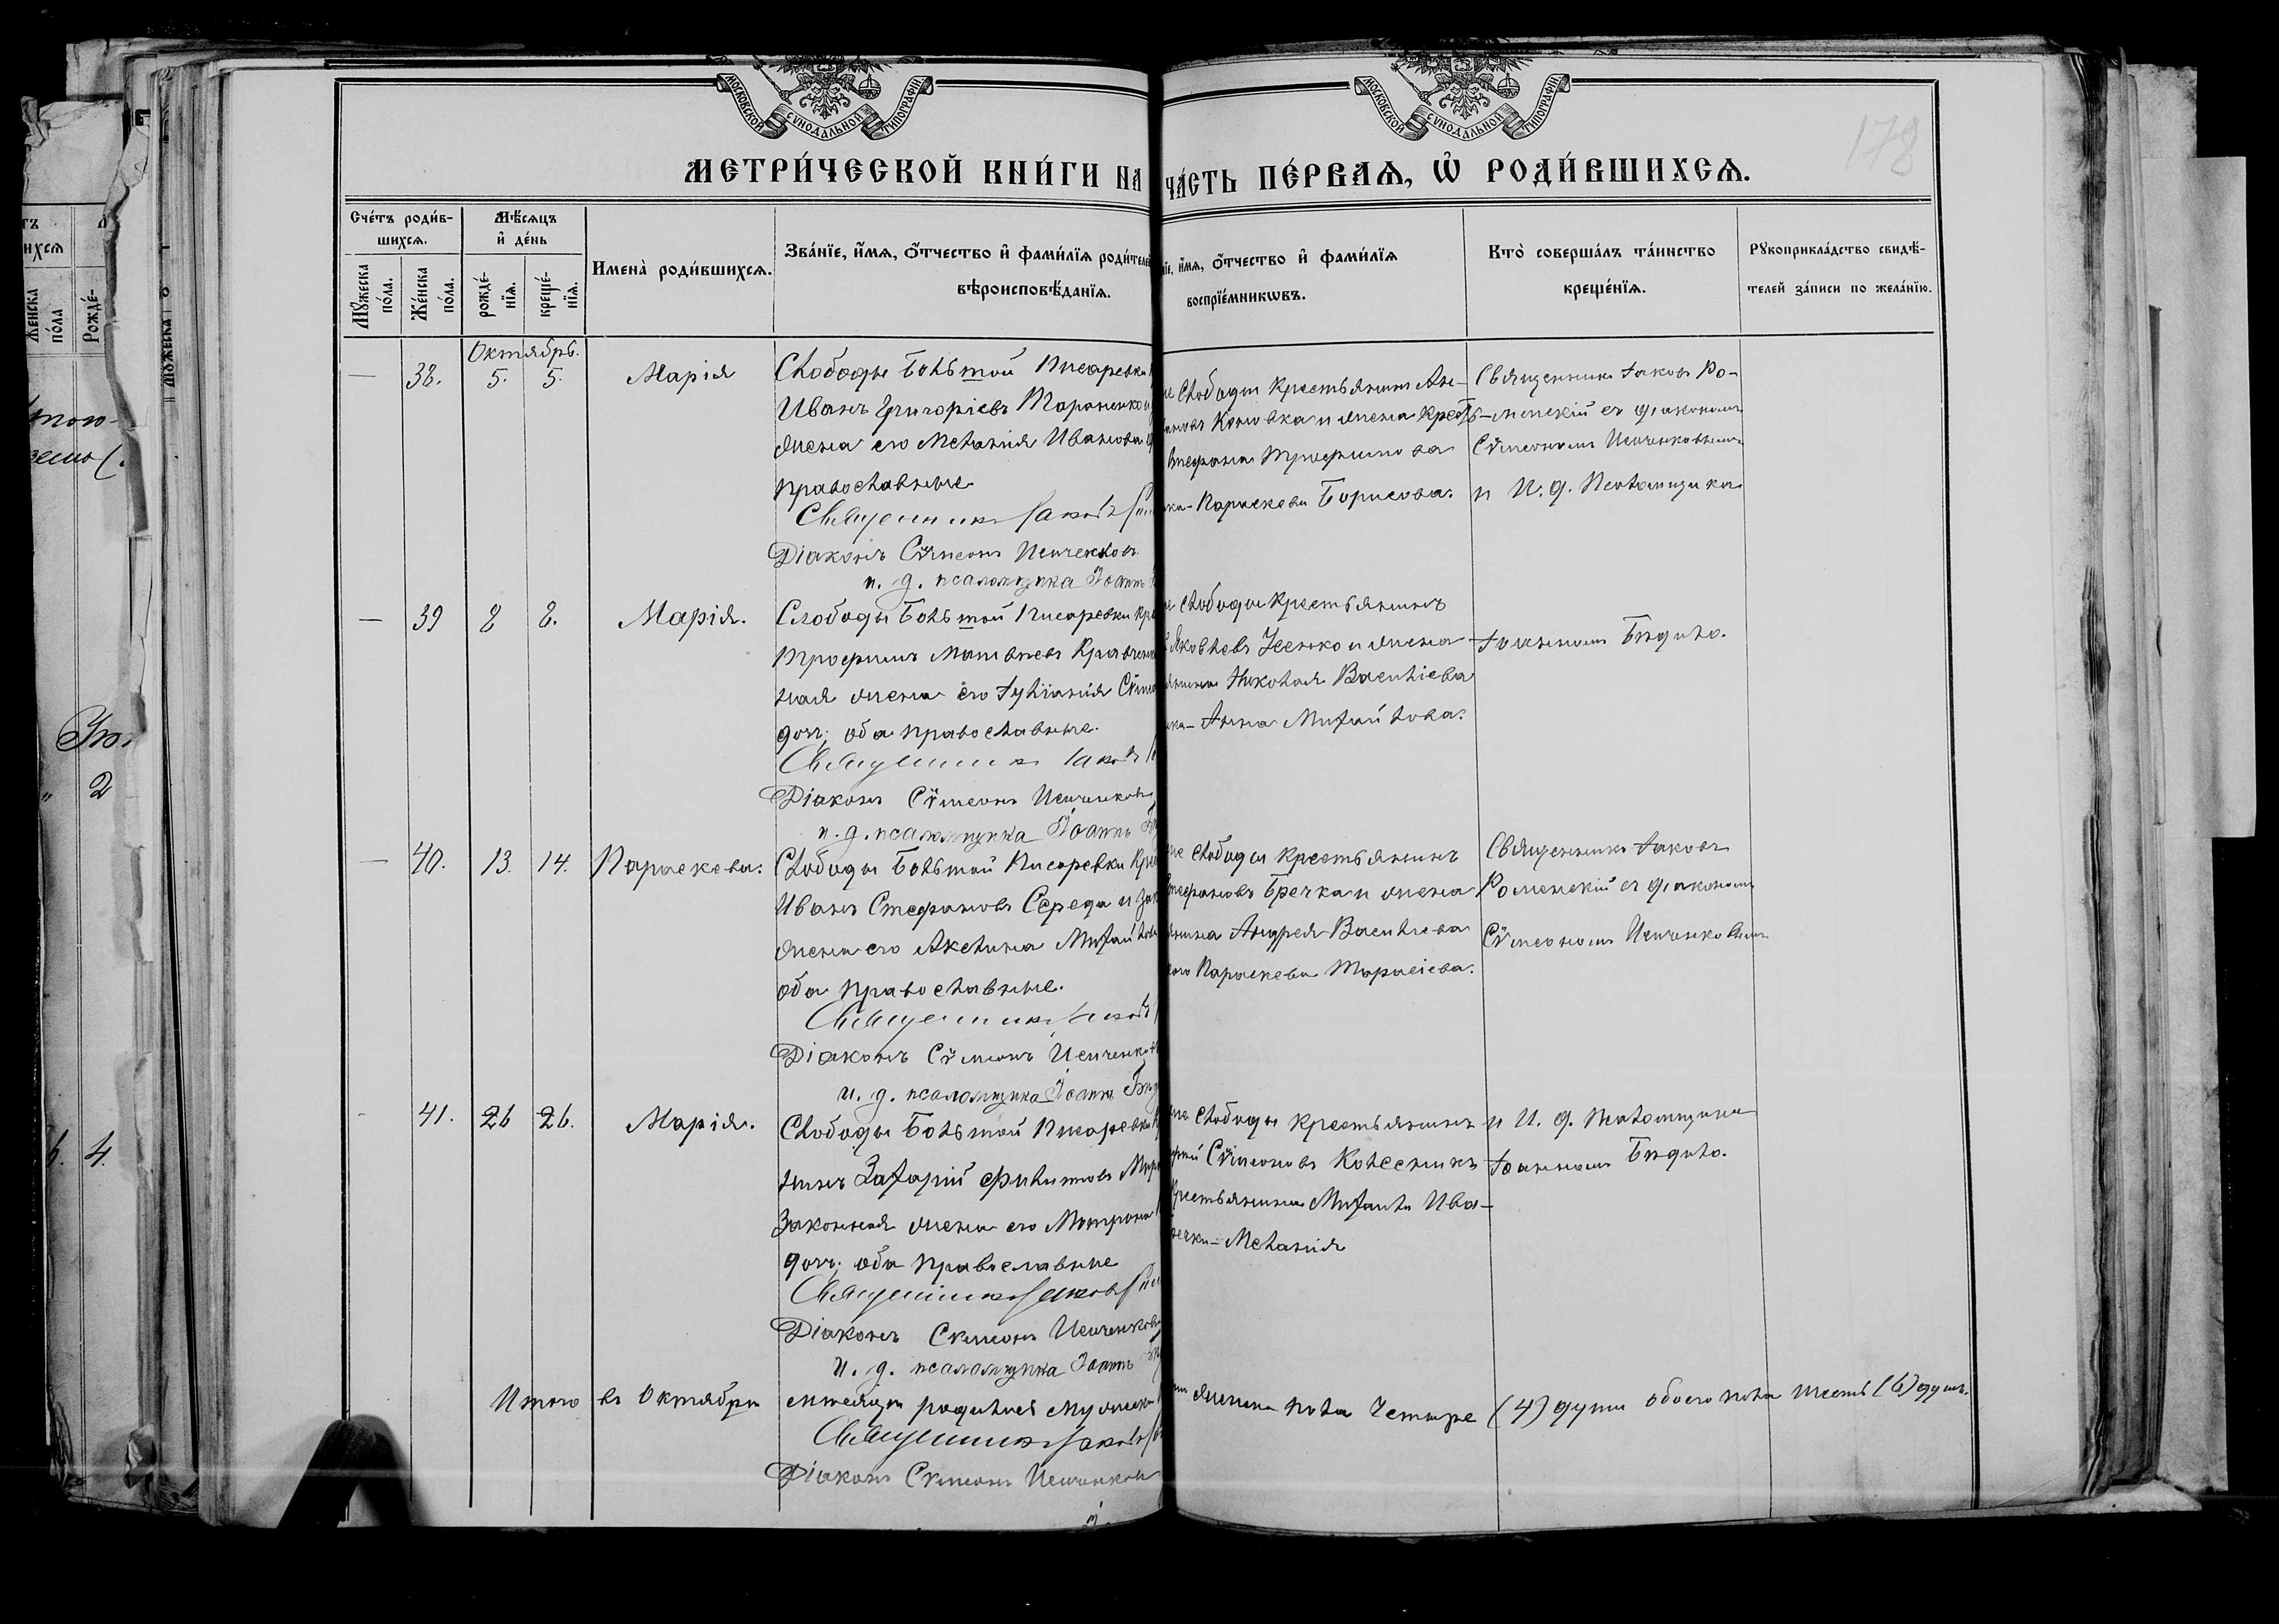 МОСКОВСКОЙ СѴНОДАЛЬНОЙ ТИПОГРАФІИ
МОСКОВСКОЙ СѴНОДАЛЬНОЙ ТИПОГРАФІИ
178
МЕТРИ́ЧЕСКОЙ КНИ́ГИ НА
ЧА́СТЬ ПЕ́РВАѦ, Ѡ҆ РОДИ́ВШИХСѦ.
Сче́тъ роди́в-
шихсѧ.
Мѣ́сѧцъ
и҆ де́нь
Мꙋ́жеска
по́ла.
Же́нска
по́ла.
рожде́-
нїѧ.
креще́-
нїѧ.
Имена̀ роди́вшихсѧ.
Зва́нїе, и҆́мѧ, ѻ҆́тчество и҆ фами́лїѧ роди́телей
вѣроисповѣ́данїѧ.
и҆́мѧ, ѻ҆́тчество и҆ фами́лїѧ
воспрїе́мникѡвъ.
Кто̀ соверша́лъ та́инство
креще́нїѧ.
Рꙋкоприкла́дство свидѣ́-
телей за́писи по жела́нїю.
Октябрь.
— 38. 5. 5. Марія
Слободы Большой Писаревки
Иванъ Григоріевъ Тараненко и
жена его Меланія Иванова
православные
Священникъ Іаковъ
Діаконъ Сѵмеонъ Исиченковъ
и. д. псаломщика Іоаннъ
Слободы крестьянинъ
Коновка и жена крестья-
Стефана Трофимова
Параскева Борисова.
Священникъ Іаковъ Ро-
менскій съ діакономъ
Сѵмеономъ Исиченковымъ
и И. д. Псаломщика
— 39 8 8. Марія.
Слободы Большой Писаревки
Трофимъ Матвѣевъ Кравченко
ная жена его Іуліанія
доч; оба православные.
Священникъ Іаковъ
Діаконъ Сѵмеонъ Исиченковъ
и. д. псаломщика Іоаннъ
Слободы крестьянинъ
Яковлевъ Усенко и жена
Николая Васильева
Анна Михайлова.
Іоанномъ Бѣдило.
— 40. 13. 14. Параскева.
Слободы Большой Писаревки
Иванъ Стефановъ Середа и
жена его Акелина
оба православные.
Священникъ Іаковъ
Діаконъ Сѵмеонъ Исиченковъ
и. д. псаломщика Іоаннъ
Слободы крестьянинъ
Стефановъ Гречка и жена
Андрея Васильева
Параскева Тарасіева.
Священникъ Іаковъ
Роменскій съ діакономъ
Сѵмеономъ Исиченковымъ
41. 26 26. Марія.
Слободы Большой Писаревки
нинъ Захарій Филиповъ
законная жена его Матрона
доч; оба православные
Священникъ Іаковъ
Діаконъ Сѵмеонъ Исиченковъ
и. д. псаломщика Іоаннъ
Слободы крестьянинъ
Сѵмеоновъ Колесникъ
крестьянина Михаила Ива-
Меланія
и И. д. Псаломщика
Іоанномъ Бѣдило.
Итого въ Октябрѣ мѣсяцѣ родилось мужеска
женска пола четыре (4) души обоего пола шесть (6) душъ.
Священникъ Іаковъ
Діаконъ Сѵмеонъ Исиченковъ